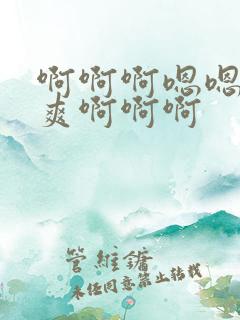 啊啊啊嗯嗯
爽啊啊啊
管维镛
未经同意禁止转载